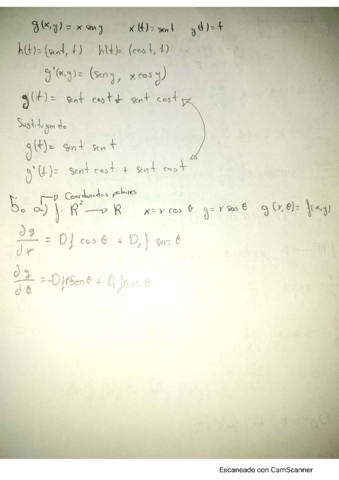 g(x,y) = x sen y     x(t) = sent     y(t) = t
h(t) = (sent, t)     h(t) = (cost, 1)
g'(x,y) = (sen y, x cos y)
g'(t) = sent cost + sent cost
Sustituyendo
g(t) = sent sent
g'(t) = sent cost + sent cost
Coordenadas polares
5. a) f: R² → R     x = r cos θ     y = r sen θ     g(r, θ) = f(x,y)
∂g/∂r = D₁f cos θ + D₂f sen θ
∂g/∂θ = -D₁f r sen θ + D₂f r cos θ
Escaneado con CamScanner